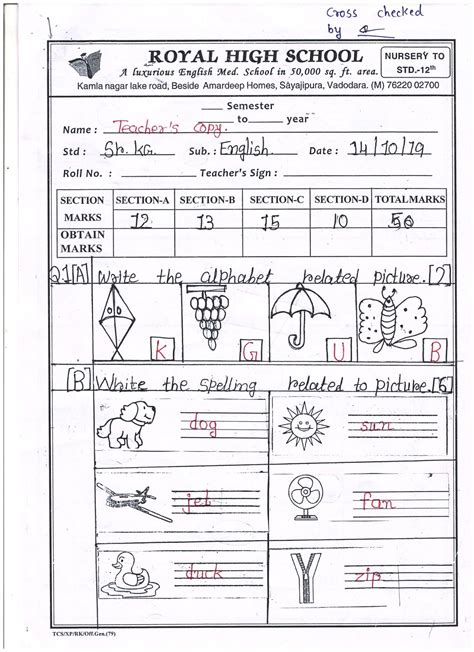 Cross checked
by
ROYAL HIGH SCHOOL
A luxurious English Med. School in 50,000 sq. ft. area.
NURSERY TO
STD.-12th
Kamla nagar lake road, Beside Amardeep Homes, Sayajipura, Vadodara. (M) 76220 02700
Semester
to year
Name : Teacher's copy.
Std : Sr. KG. Sub. : English. Date : 14/10/19
Roll No. : Teacher's Sign :
SECTION MARKS SECTION-A SECTION-B SECTION-C SECTION-D TOTALMARKS
12 13 15 10 50
OBTAIN MARKS
Q1[A] Write the alphabet related picture. [2]
K G U B
[B] White the spelling related to picture. [6]
dog sun
jet fan
duck zip
TCS/XP/RK/Off.Gen.(79)